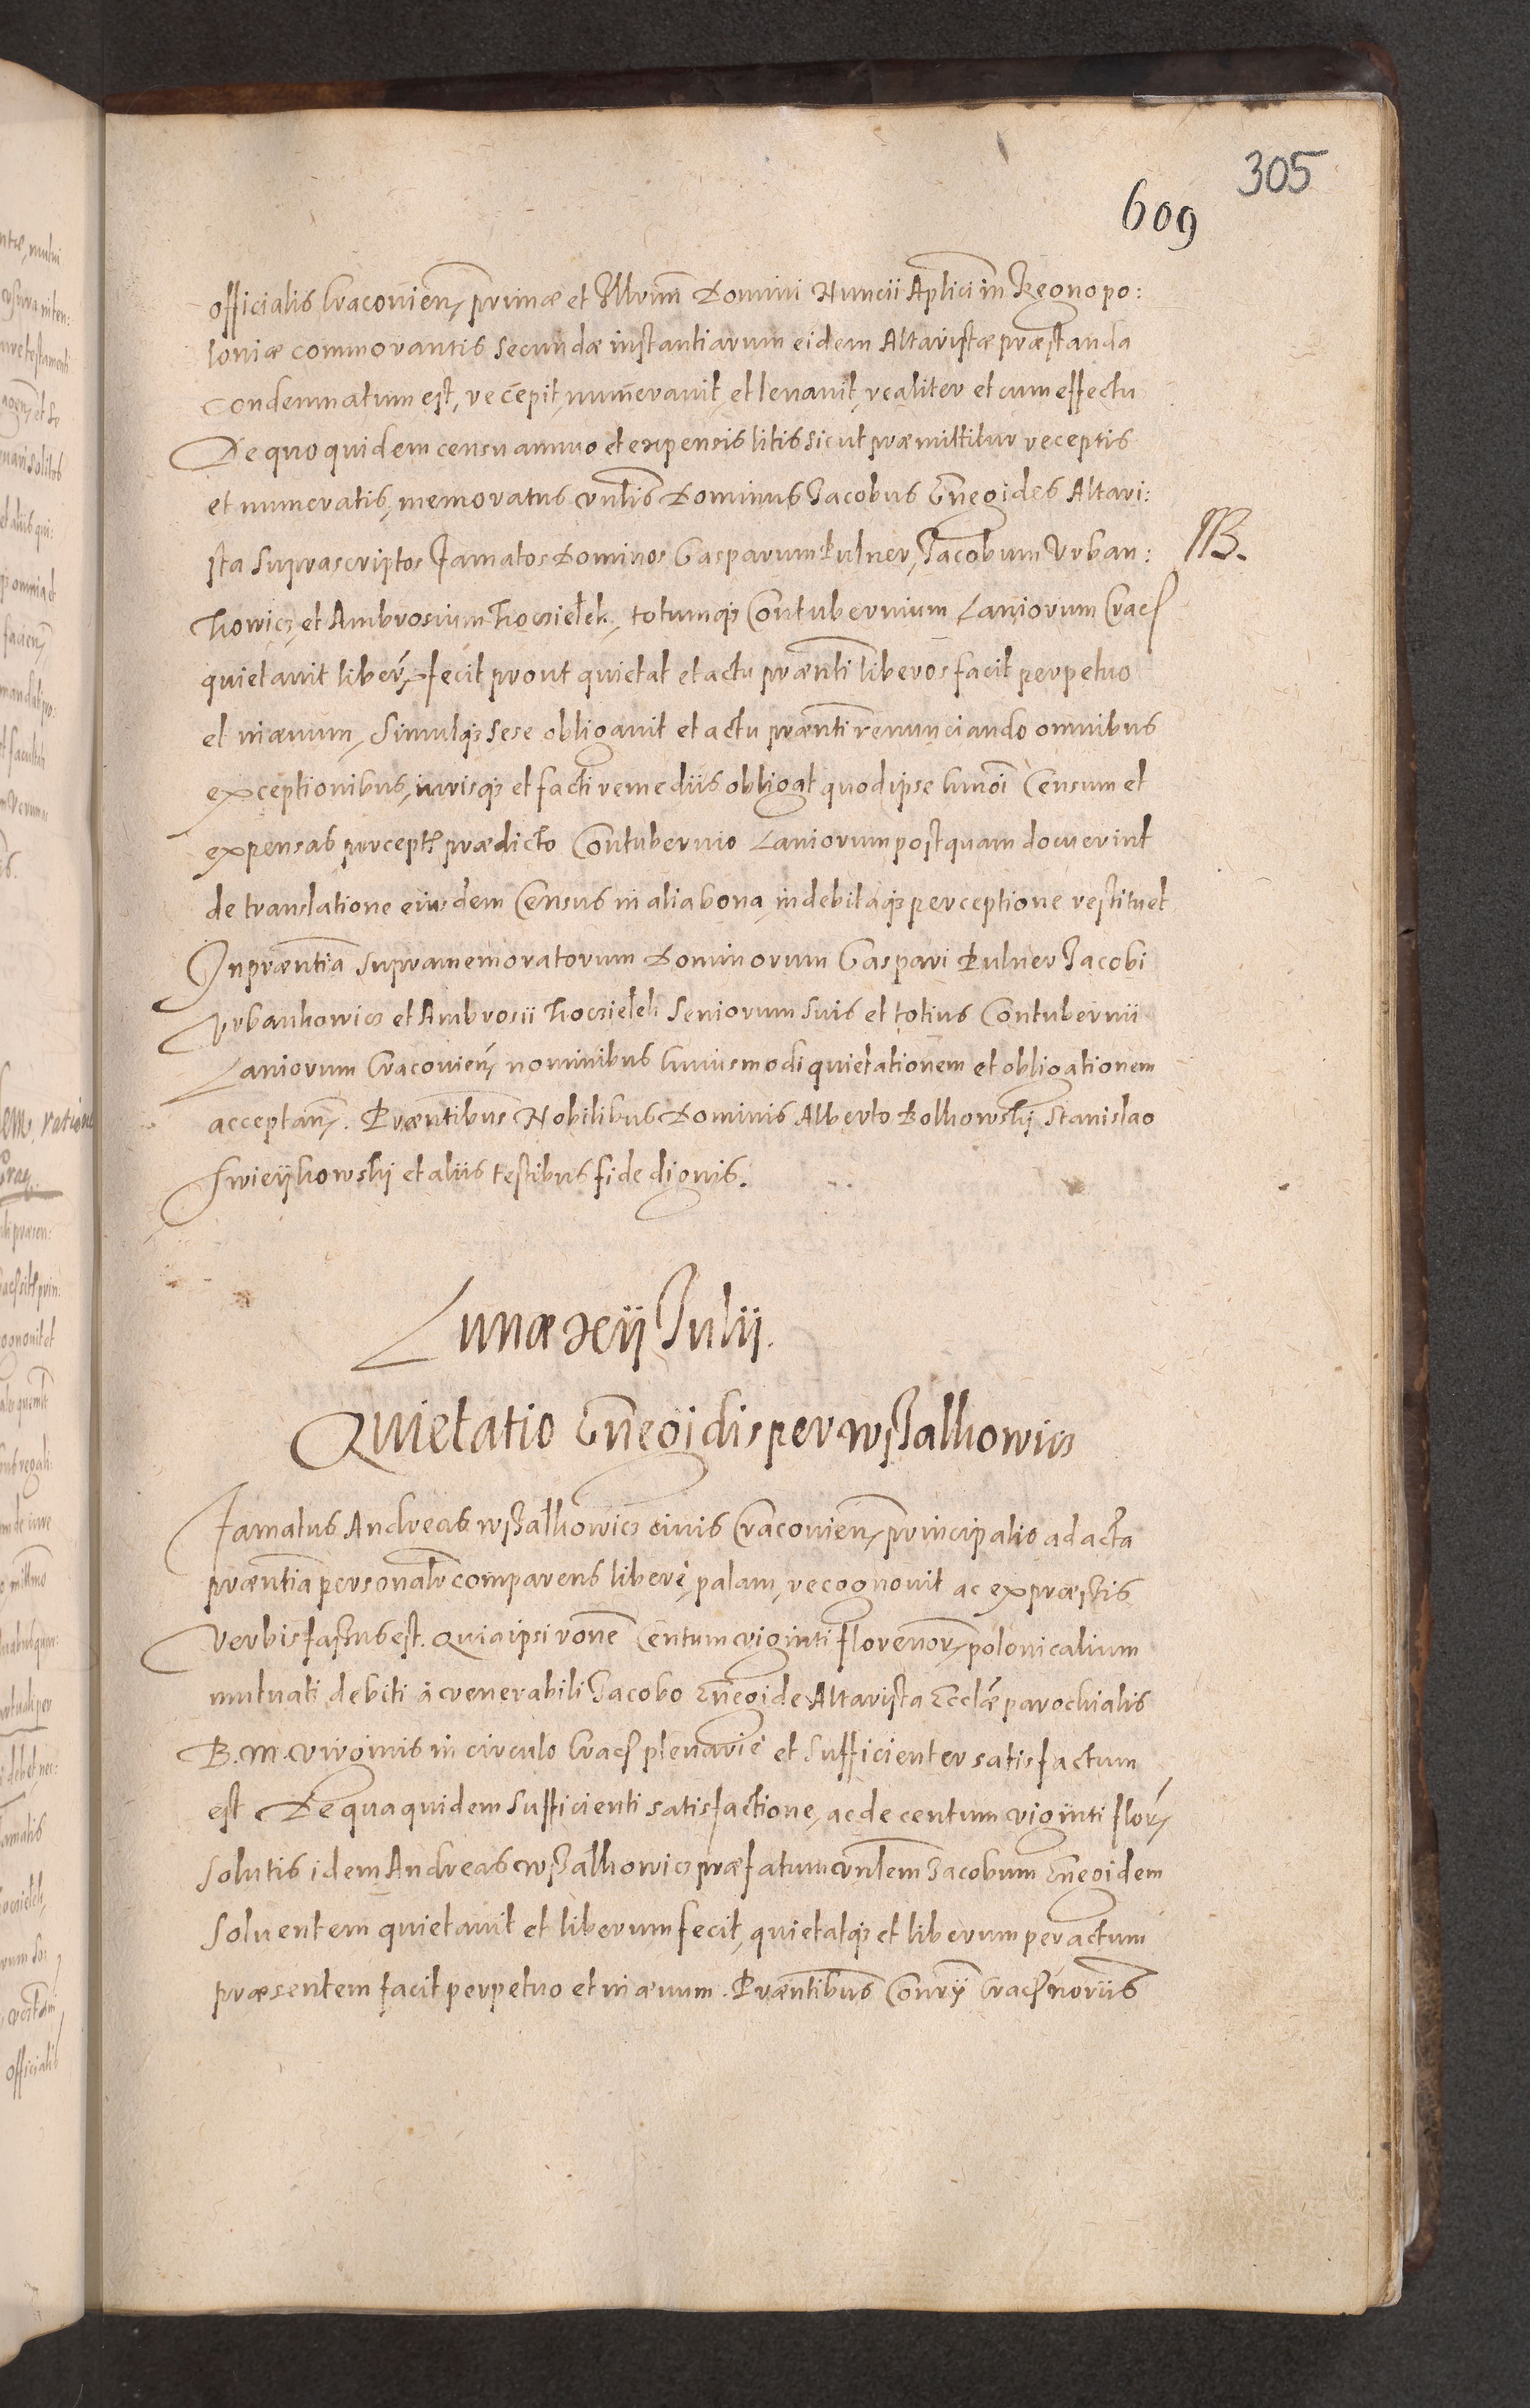 305
609
officialis Cracovien̄, primæ et Illmi Domini Nuncii Aplici in Regno Po:
loniæ commorantis secundæ instantiarum eidem Altaristæ præstanda
condemnatum est, recepit, numeravit, et levavit, realiter et cum effectu
De quo quidem censu annuo et expensis litis sicut præmittitur receptis
et numeratis, memoratus vnlis Dominus Jacobus Gnegides Altari:
sta suprascriptos Famatos Dominos Gasparum Pulner, Jacobum Vrban: NB.
kowicz et Ambrosium Koczielek, totumqʒ Contubernium Laniorum Crac
quietavit liber̄, fecit prout quietat et actu præn̄ti liberos facit perpetuo
et in ævum, Simulqʒ sese obligavit et actu præn̄ti renunciando omnibus
exceptionibus, iurisqʒ et facti remediis obligat quod ipse hm̄oi Censum et
expensas percept̄ prædicto Contubernio Laniorum postquam docuerint
de translatione eiusdem Census in alia bona, indebitaqʒ perceptione restituet
In præn̄tia supramemoratorum Dominorum Gaspari Pulner Jacobi
Vrbankowicz et Ambrosii Koczielek Seniorum suis et totius Contubernii
Laniorum Cracovien̄, nominibus huiusmodi quietationem et obligationem
acceptan̄. Præn̄tibus Nobilibus Dominis Alberto Polkowskÿ, Stanislao
Swieÿkowskÿ et aliis testibus fide dignis.
Lunæ xii Julii.
Quietatio Gnegidis per wßalkowicz
Famatus Andreas wßalkowicz civis Cracovien̄, principalis ad acta
præn̄tia personalr̄ comparens liberè, palam, recognovit ac expressis
verbis fassus est. Quia ipsi rōne Centum viginti florenor̄, polonicalium
mutuati debiti à venerabili Jacobo Gnegide Altarista Ecclæ parochialis
B. M. virginis in circulo Crac plenariè et sufficienter satisfactum
est De qua quidem sufficienti satisfactione, ac de centum viginti flor̄,
solutis idem Andreas wßalkowicz præfatum vnlem Jacobum Gnegidem
solventem quietavit et liberum fecit, quietatqʒ et liberum per actum
præsentem facit perpetuo et in ævum. Præn̄tibus Conrÿ Crac noriis